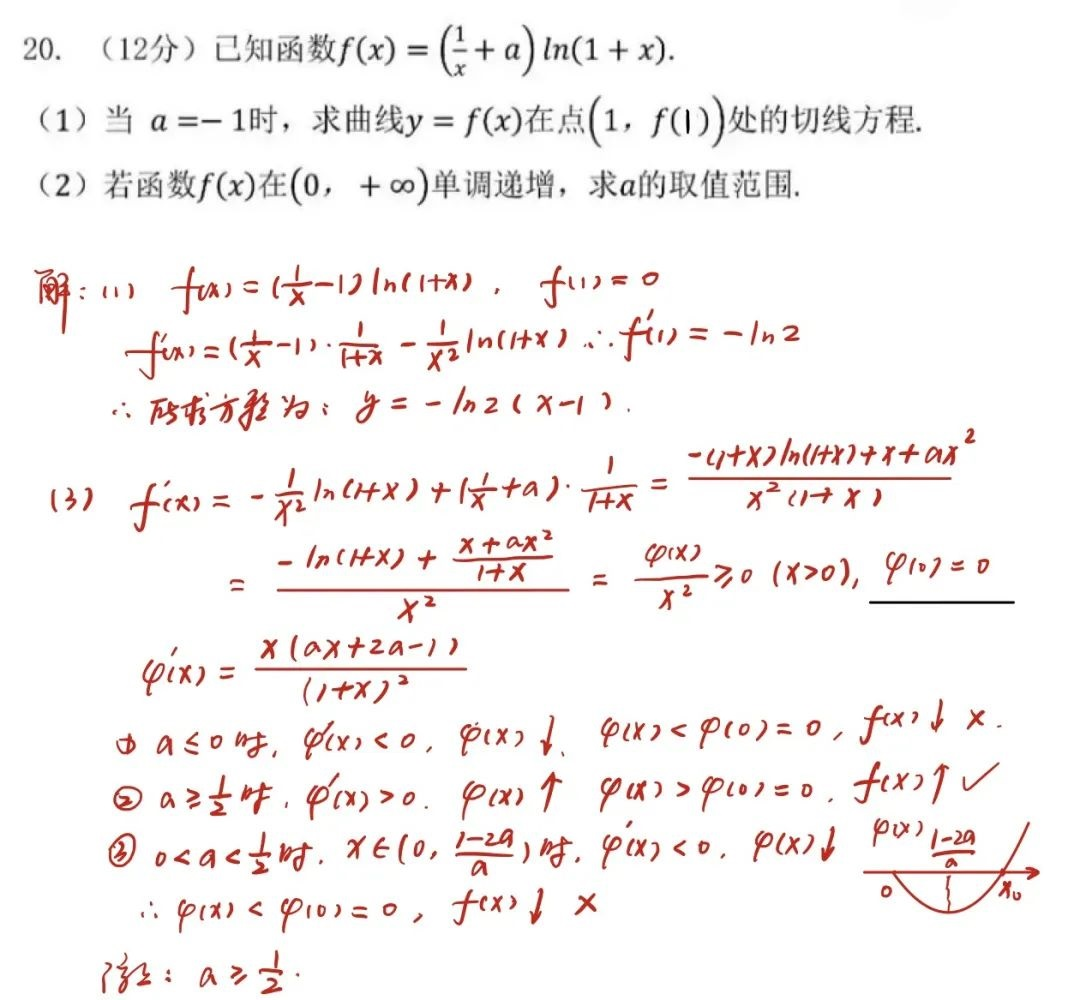 20. （12分）已知函数f(x) = (1/x + a) ln(1 + x).
（1）当 a =− 1时，求曲线y = f(x)在点(1，f(1))处的切线方程.
（2）若函数f(x)在(0，+∞)单调递增，求a的取值范围.
解：(1) f(x) = (1/x − 1) ln(1+x)， f(1) = 0
f′(x) = (1/x − 1) · 1/(1+x) − 1/x² ln(1+x) ∴ f′(1) = −ln2
∴ 所求方程为：y = −ln2 (x−1).
(3) f′(x) = −1/x² ln(1+x) + (1/x + a) · 1/(1+x) = (−(1+x)ln(1+x) + x + ax²)/(x²(1+x))
= (−ln(1+x) + (x+ax²)/(1+x))/x² = φ(x)/x² ≥ 0 (x>0), φ(0) = 0
φ′(x) = x(ax+2a−1)/(1+x)²
① a ≤ 0 时, φ′(x) < 0, φ(x)↓, φ(x) < φ(0) = 0, f(x)↓ ×.
② a ≥ 1/2 时, φ′(x) > 0. φ(x)↑ φ(x) > φ(0) = 0. f(x)↑ ✓
③ 0 < a < 1/2 时, x∈(0, (1−2a)/a) 时, φ′(x) < 0. φ(x)↓ φ(x) (1−2a)/a
0 x₀
∴ φ(x) < φ(0) = 0, f(x)↓ ×
综上：a ≥ 1/2.